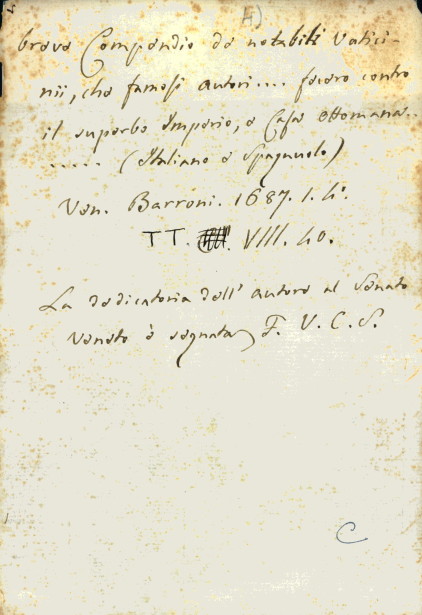 A)
breve Compendio de notabili Vatici-
nii, che famosi autori.... fecero contro
il superbo Imperio, e Casa Ottomana..
..... (Italiano e Spagnuolo)
Ven. Barroni. 1687. 1. 4º.
TT. VIII. 40.
La dedicatoria dell' autore al Senato
Veneto è segnata F. V. C. S.
C